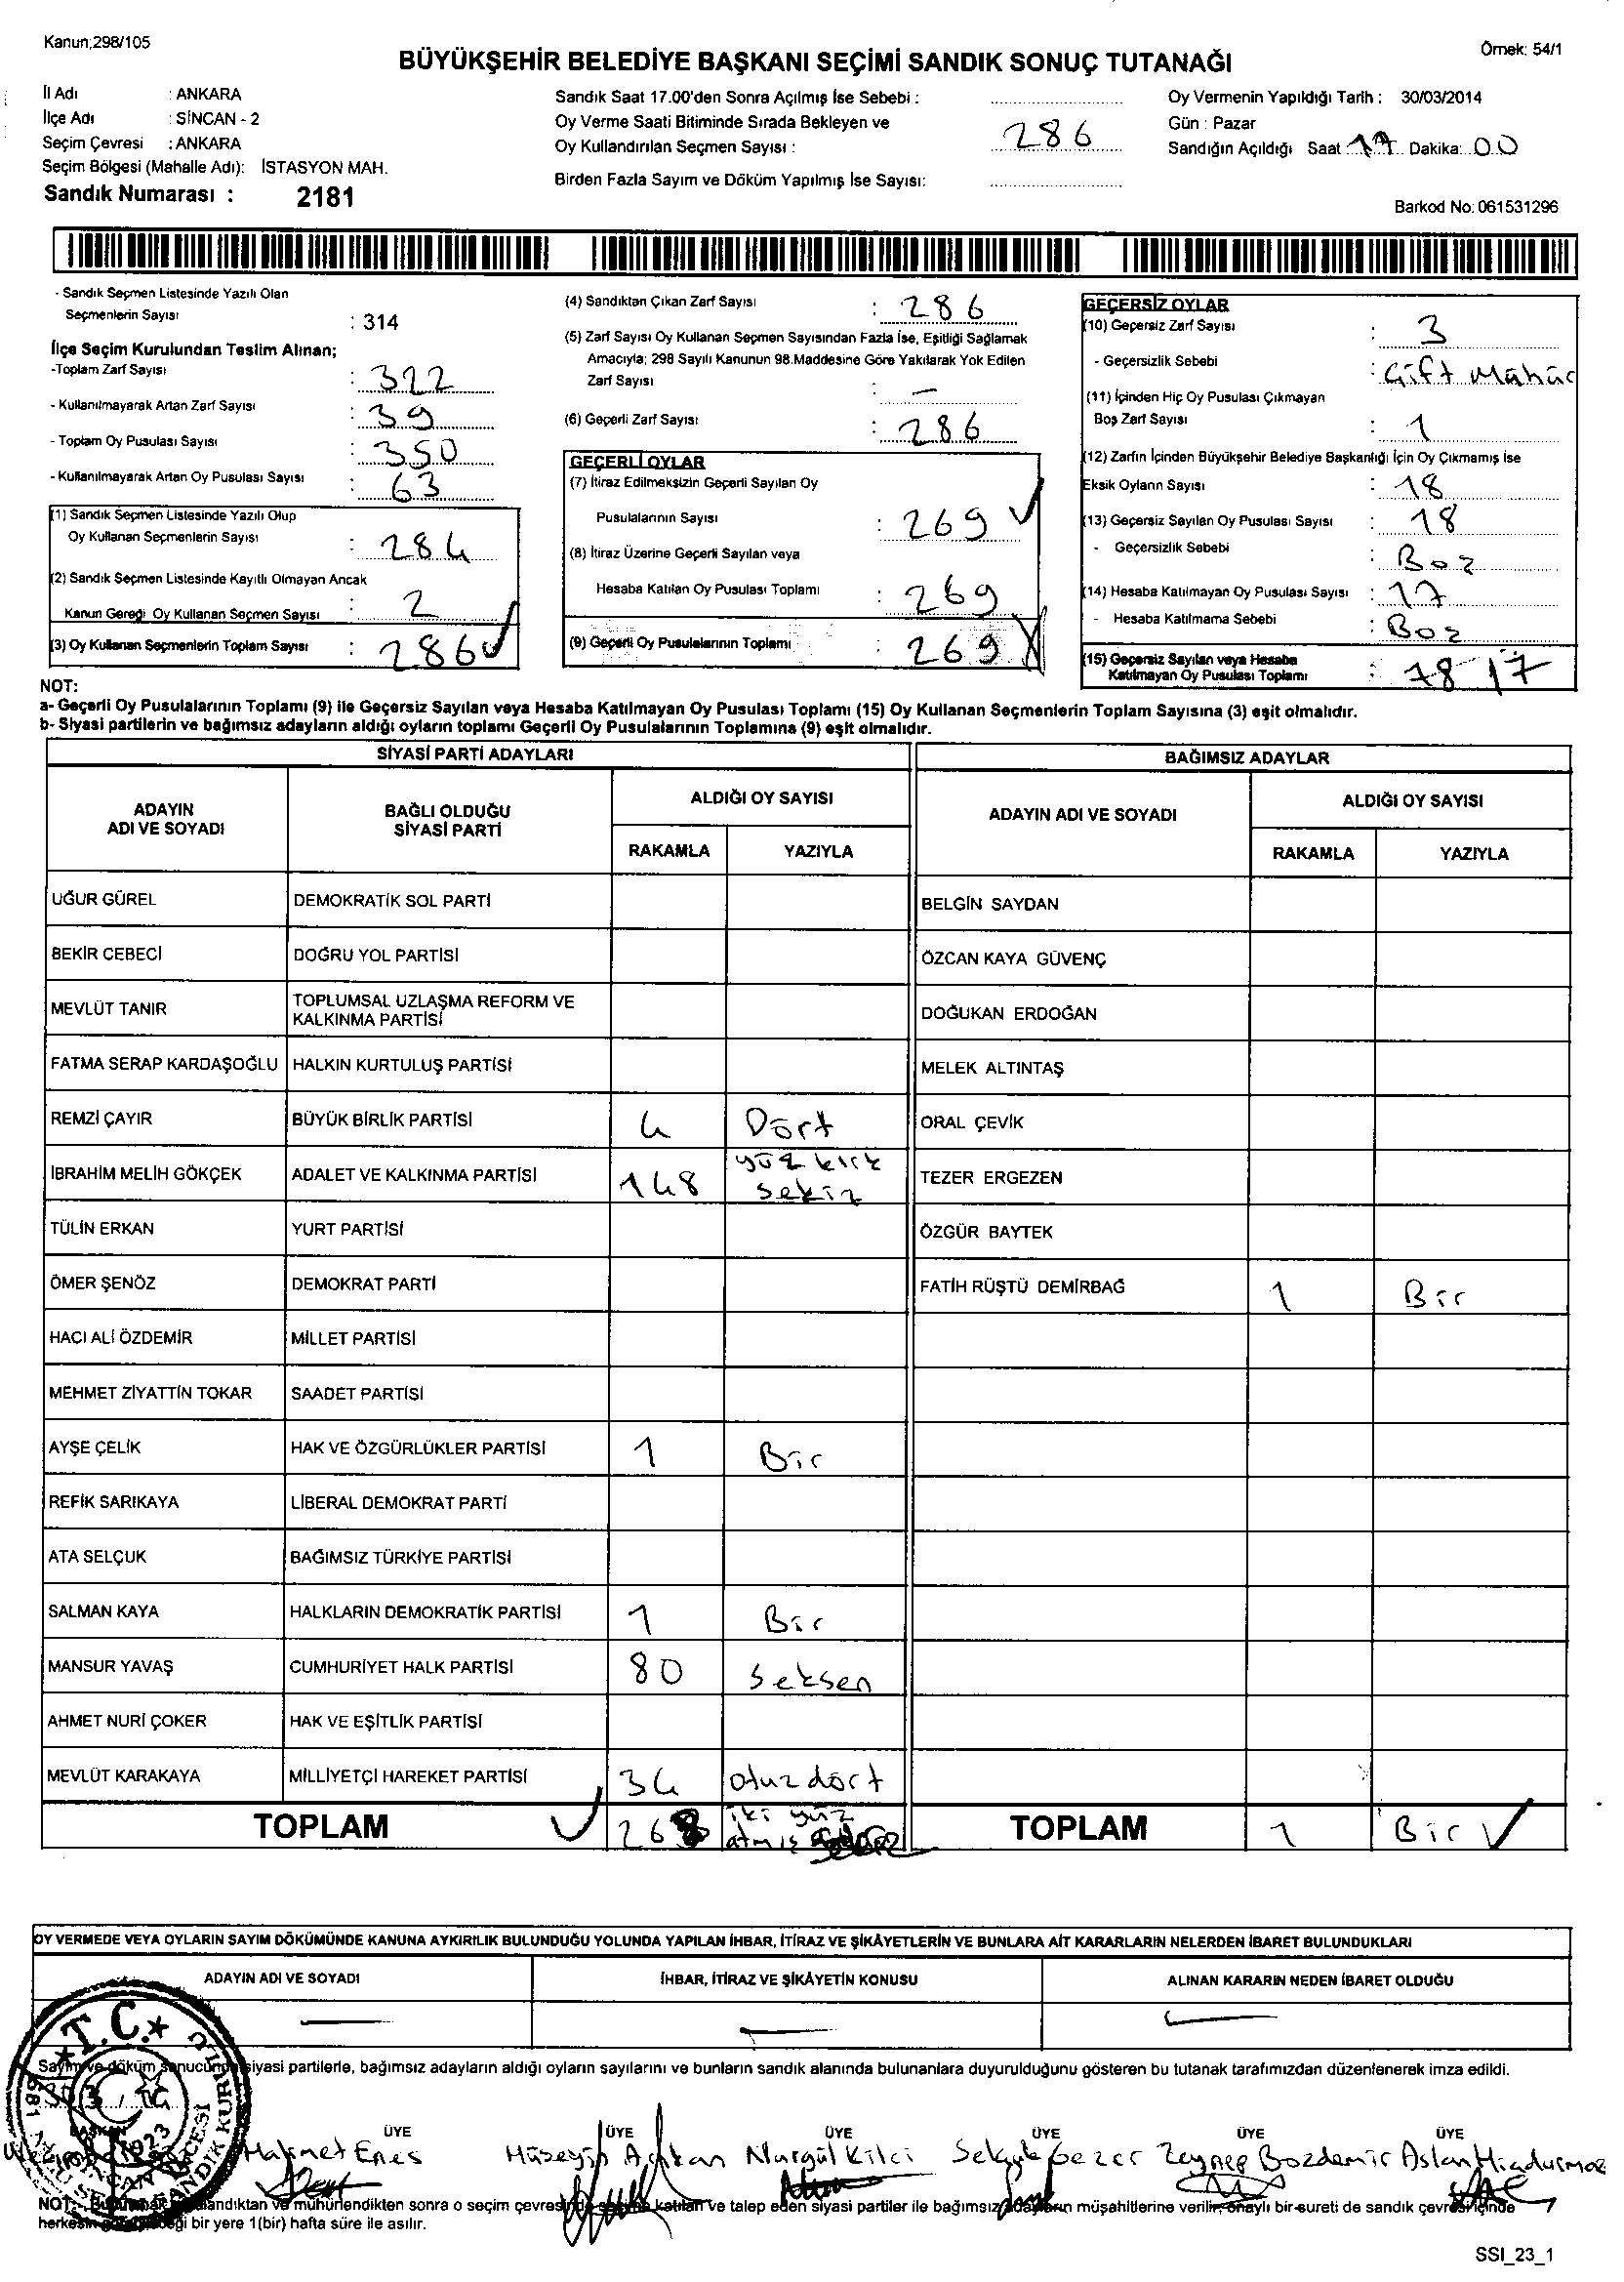 Kanun;298/105
Örnek: 54/1
BÜYÜKŞEHİR BELEDİYE BAŞKANI SEÇİMİ SANDIK SONUÇ TUTANAĞI
İl Adı : ANKARA
İlçe Adı : SİNCAN - 2
Seçim Çevresi : ANKARA
Seçim Bölgesi (Mahalle Adı): İSTASYON MAH.
Sandık Numarası : 2181
Sandık Saat 17.00'den Sonra Açılmış İse Sebebi :
Oy Verme Saati Bitiminde Sırada Bekleyen ve
Oy Kullandırılan Seçmen Sayısı : 286
Birden Fazla Sayım ve Döküm Yapılmış İse Sayısı:
Oy Vermenin Yapıldığı Tarih : 30/03/2014
Gün : Pazar
Sandığın Açıldığı Saat 17 Dakika: 00
Barkod No: 061531296
- Sandık Seçmen Listesinde Yazılı Olan
Seçmenlerin Sayısı : 314
İlçe Seçim Kurulundan Teslim Alınan;
-Toplam Zarf Sayısı : 322
- Kullanılmayarak Artan Zarf Sayısı : 39
- Toplam Oy Pusulası Sayısı : 350
- Kullanılmayarak Artan Oy Pusulası Sayısı : 63
(1) Sandık Seçmen Listesinde Yazılı Olup
Oy Kullanan Seçmenlerin Sayısı : 284
(2) Sandık Seçmen Listesinde Kayıtlı Olmayan Ancak
Kanun Gereği Oy Kullanan Seçmen Sayısı : 2
(3) Oy Kullanan Seçmenlerin Toplam Sayısı : 286
(4) Sandıktan Çıkan Zarf Sayısı : 286
(5) Zarf Sayısı Oy Kullanan Seçmen Sayısından Fazla İse, Eşitliği Sağlamak
Amacıyla; 298 Sayılı Kanunun 98.Maddesine Göre Yakılarak Yok Edilen
Zarf Sayısı : -
(6) Geçerli Zarf Sayısı : 286
GEÇERLİ OYLAR
(7) İtiraz Edilmeksizin Geçerli Sayılan Oy
Pusulalarının Sayısı : 269
(8) İtiraz Üzerine Geçerli Sayılan veya
Hesaba Katılan Oy Pusulası Toplamı : 269
(9) Geçerli Oy Pusulalarının Toplamı : 269
GEÇERSİZ OYLAR
(10) Geçersiz Zarf Sayısı : 3
- Geçersizlik Sebebi : Çift Mühür
(11) İçinden Hiç Oy Pusulası Çıkmayan
Boş Zarf Sayısı : 1
(12) Zarfın İçinden Büyükşehir Belediye Başkanlığı İçin Oy Çıkmamış İse
Eksik Oyların Sayısı : 18
(13) Geçersiz Sayılan Oy Pusulası Sayısı : 18
- Geçersizlik Sebebi : Boz
(14) Hesaba Katılmayan Oy Pusulası Sayısı : 17
- Hesaba Katılmama Sebebi : Boz
(15) Geçersiz Sayılan veya Hesaba
Katılmayan Oy Pusulası Toplamı : 18 17
NOT:
a- Geçerli Oy Pusulalarının Toplamı (9) ile Geçersiz Sayılan veya Hesaba Katılmayan Oy Pusulası Toplamı (15) Oy Kullanan Seçmenlerin Toplam Sayısına (3) eşit olmalıdır.
b- Siyasi partilerin ve bağımsız adayların aldığı oyların toplamı Geçerli Oy Pusulalarının Toplamına (9) eşit olmalıdır.
SİYASİ PARTİ ADAYLARI
BAĞIMSIZ ADAYLAR
ADAYIN ADI VE SOYADI
BAĞLI OLDUĞU SİYASİ PARTİ
ALDIĞI OY SAYISI
RAKAMLA YAZIYLA
ADAYIN ADI VE SOYADI
ALDIĞI OY SAYISI
RAKAMLA YAZIYLA
UĞUR GÜREL DEMOKRATİK SOL PARTİ BELGİN SAYDAN
BEKİR CEBECİ DOĞRU YOL PARTİSİ ÖZCAN KAYA GÜVENÇ
MEVLÜT TANIR TOPLUMSAL UZLAŞMA REFORM VE KALKINMA PARTİSİ DOĞUKAN ERDOĞAN
FATMA SERAP KARDAŞOĞLU HALKIN KURTULUŞ PARTİSİ MELEK ALTINTAŞ
REMZİ ÇAYIR BÜYÜK BİRLİK PARTİSİ 4 Dört ORAL ÇEVİK
İBRAHİM MELİH GÖKÇEK ADALET VE KALKINMA PARTİSİ 148 yüz kırk sekiz TEZER ERGEZEN
TÜLİN ERKAN YURT PARTİSİ ÖZGÜR BAYTEK
ÖMER ŞENÖZ DEMOKRAT PARTİ FATİH RÜŞTÜ DEMİRBAĞ 1 Bir
HACI ALİ ÖZDEMİR MİLLET PARTİSİ
MEHMET ZİYATTİN TOKAR SAADET PARTİSİ
AYŞE ÇELİK HAK VE ÖZGÜRLÜKLER PARTİSİ 1 Bir
REFİK SARIKAYA LİBERAL DEMOKRAT PARTİ
ATA SELÇUK BAĞIMSIZ TÜRKİYE PARTİSİ
SALMAN KAYA HALKLARIN DEMOKRATİK PARTİSİ 1 Bir
MANSUR YAVAŞ CUMHURİYET HALK PARTİSİ 80 Seksen
AHMET NURİ ÇOKER HAK VE EŞİTLİK PARTİSİ
MEVLÜT KARAKAYA MİLLİYETÇİ HAREKET PARTİSİ 34 otuz dört
TOPLAM 268 iki yüz atmış TOPLAM 1 Bir
OY VERMEDE VEYA OYLARIN SAYIM DÖKÜMÜNDE KANUNA AYKIRILIK BULUNDUĞU YOLUNDA YAPILAN İHBAR, İTİRAZ VE ŞİKÂYETLERİN VE BUNLARA AİT KARARLARIN NELERDEN İBARET BULUNDUKLARI
ADAYIN ADI VE SOYADI İHBAR, İTİRAZ VE ŞİKÂYETİN KONUSU ALINAN KARARIN NEDEN İBARET OLDUĞU
T.C.
Sayım ve döküm sonucunda siyasi partilerle, bağımsız adayların aldığı oyların sayılarını ve bunların sandık alanında bulunanlara duyurulduğunu gösteren bu tutanak tarafımızdan düzenlenerek imza edildi.
BAŞKAN ÜYE ÜYE ÜYE ÜYE ÜYE ÜYE
Enes Hüseyin Nurgül Kilci Zeynep Bozdemir Aslan
sandıktan ve mühürlendikten sonra o seçim çevresinde katılan ve talep eden siyasi partiler ile bağımsız adayların müşahitlerine verilir, onaylı bir sureti de sandık çevresi içinde
herkesin bir yere 1(bir) hafta süre ile asılır.
SSI_23_1